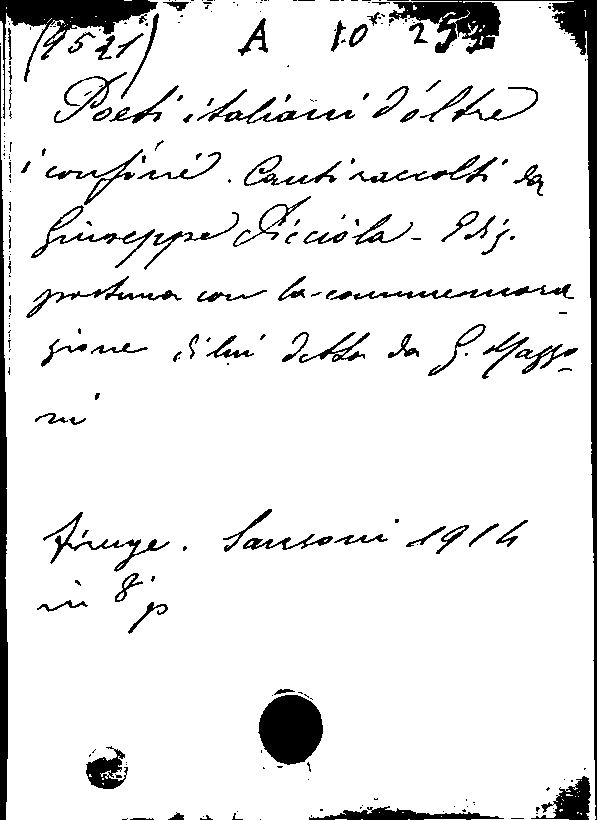 (9521) A 10 253
Poeti italiani d'oltre
i confini. Canti raccolti da
Giuseppe Picciòla - Ediz.
postuma con la commemora
zione di lui detta da G. Mazzo-
ni
Firenze. Sansoni 1914
in 8° p